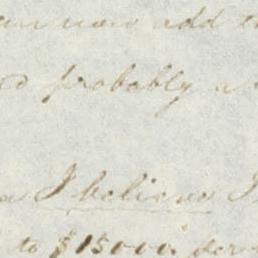 now add
probably a
I believe I
to $15000.